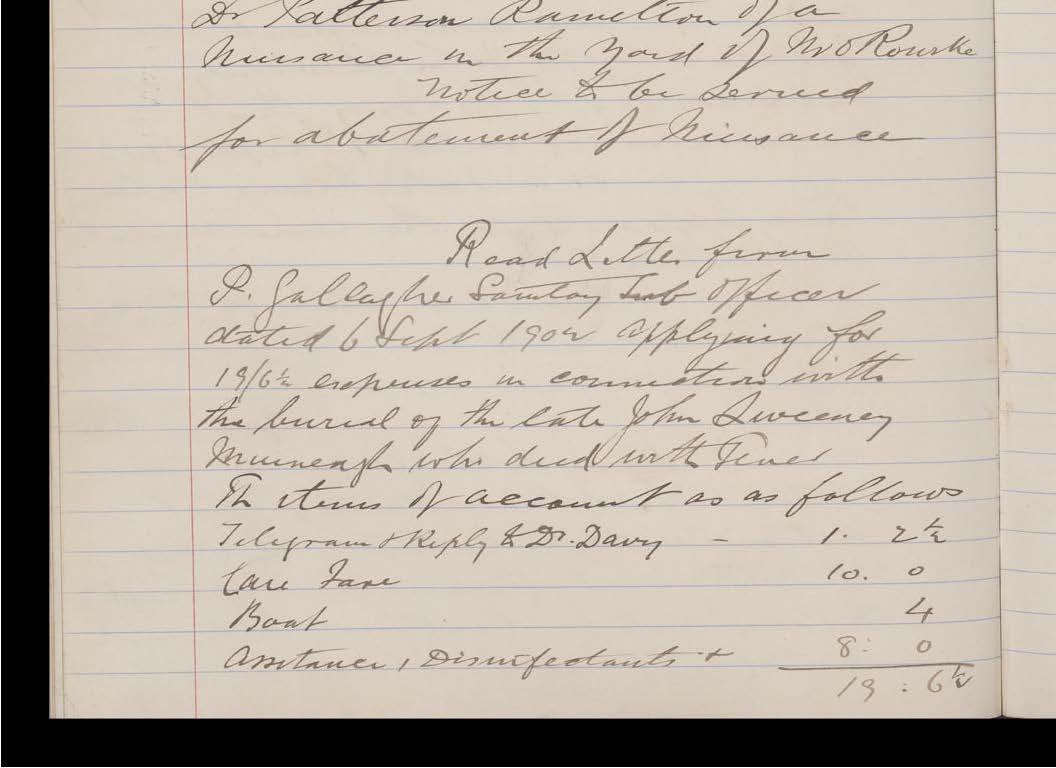 Dr Patterson Ramelton of a
Nuisance in the Yard of Mr O Rourke
Notice to be served
for abatement of Nuisance
Read Letter from
P. Gallagher Sanitary Sub Officer
dated 6 Sept 1902 applying for
19/6½ expenses in connection with
the burial of the late John Sweeney
who died with Fever
The items of account as as follows
Telegram & Reply to Dr. Davy - 1. 2½
Care Fare 10. 0
Boat 4
Assitance, Disinfectants + 8: 0
19 : 6½